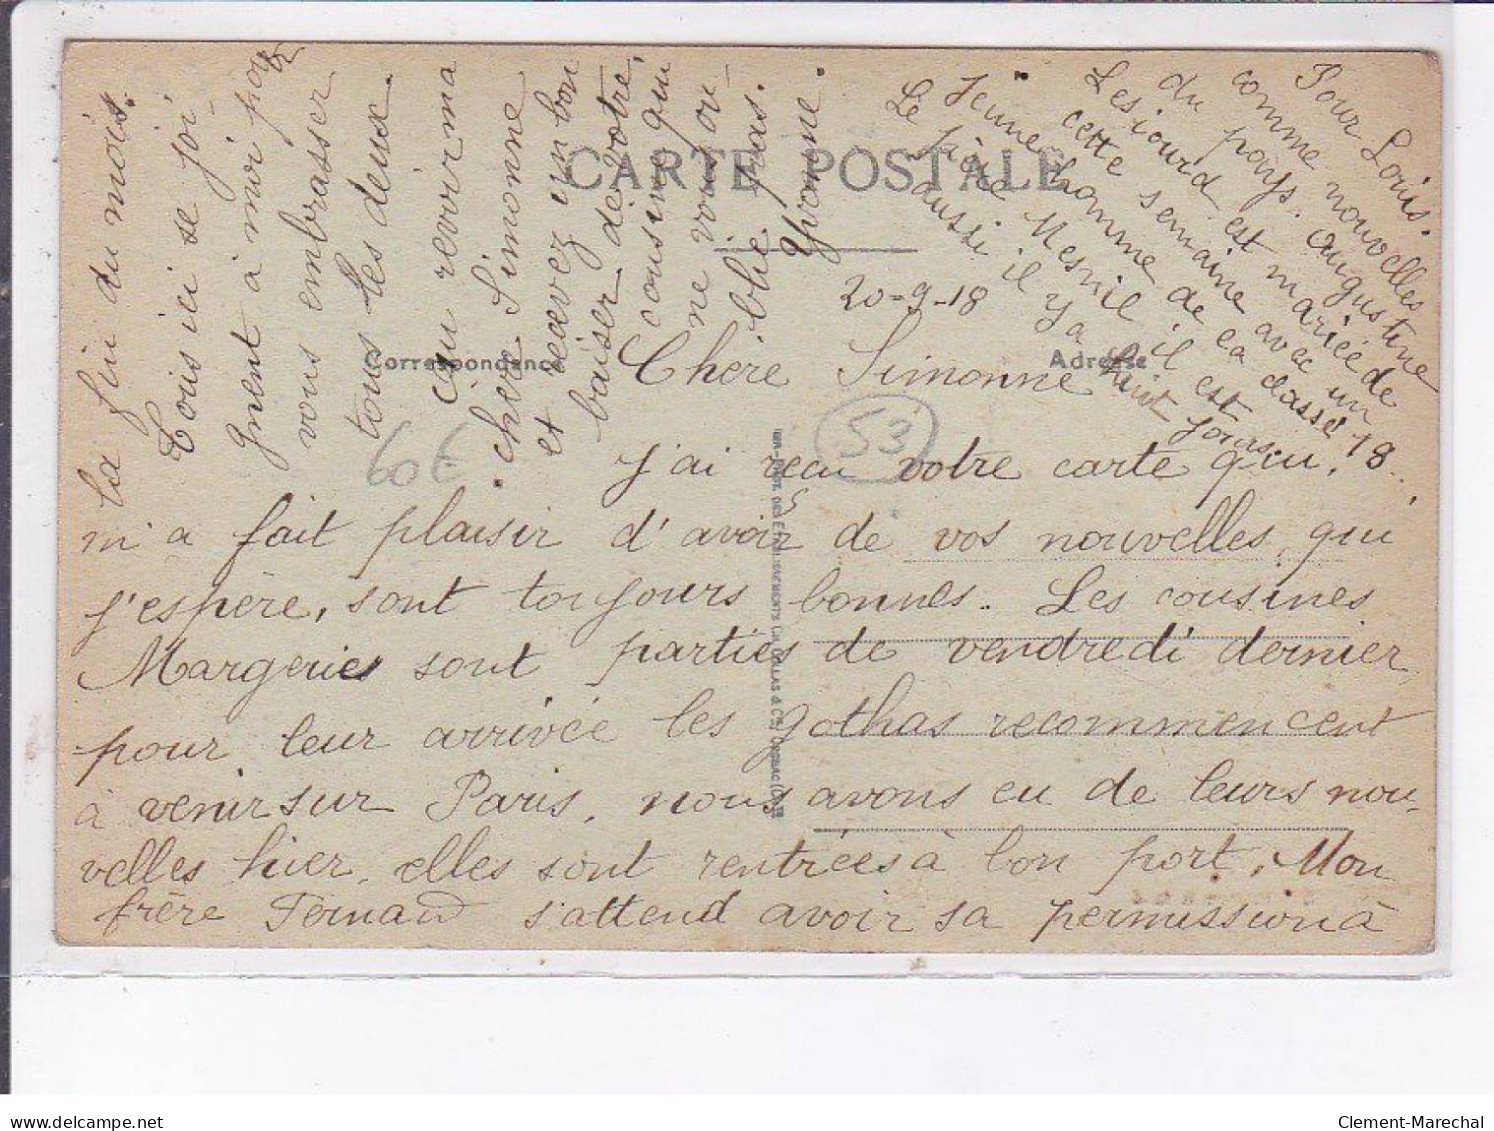 CARTE POSTALE
Correspondance
Adresse
20-9-18
Chère Simonne
j'ai reçu votre carte qui,
m'a fait plaisir d'avoir de vos nouvelles, qui
j'espère, sont toujours bonnes. Les cousines
Margeries sont parties de vendredi dernier
pour leur arrivée les gothas recommencent
à venir sur Paris, nous avons eu de leurs nou-
velles hier, elles sont rentrées à bon port. Mon
frère Fernand s'attend avoir sa permission à
la fin du mois.
Tous ici se joi-
gnent à moi pour
vous embrasser
tous les deux.
Au revoir ma
chère Simonne
et recevez un bon
baiser de votre
cousine qui
ne vous ou-
blie pas.
Yvonne.
Pour Louis.
comme nouvelles
du pays. Augustine
Lesiourd est mariée de
cette semaine avec un
Jeune homme de la classe 18.
Le père Mesnil il est
aussi il y a huit jours.
53
60€
delcampe.net
Clement-Marechal